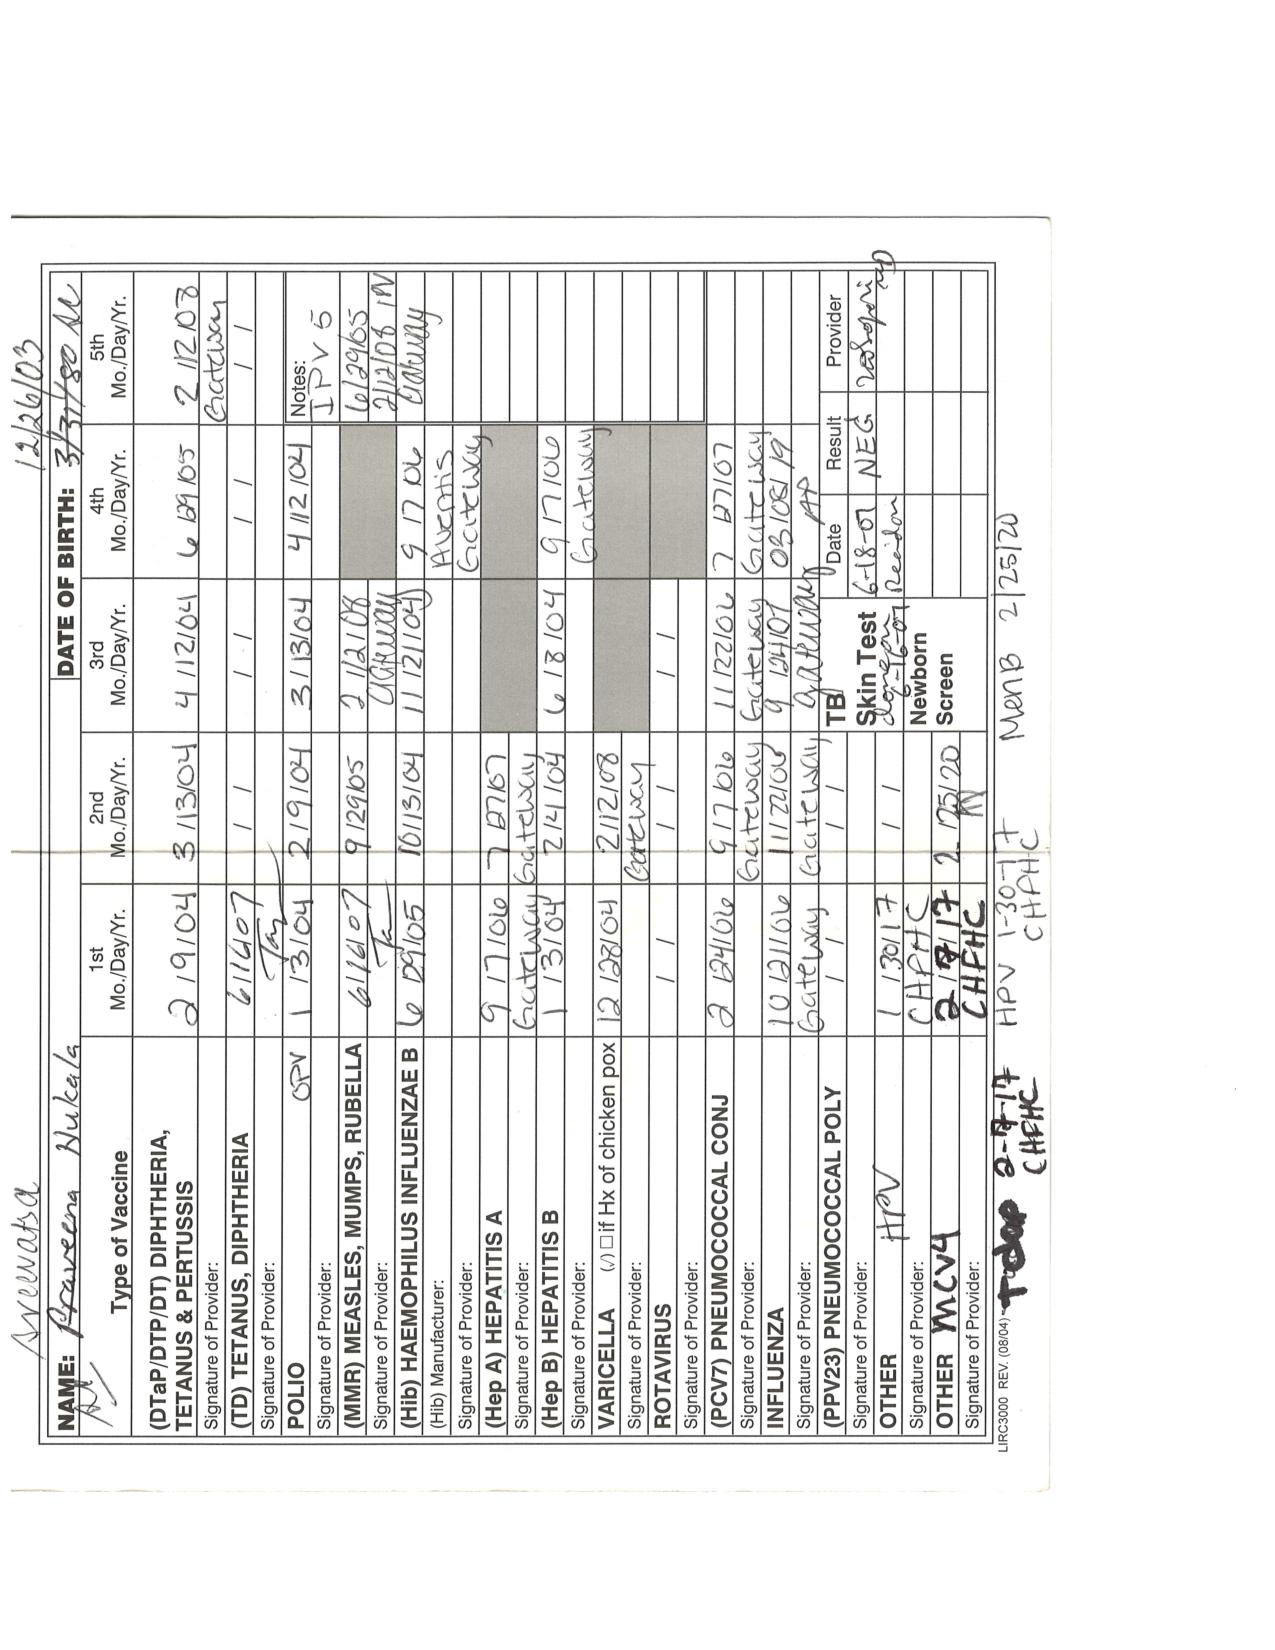 Sreevatsa 12/26/03
NAME: Praveena Nukala DATE OF BIRTH: 3/31/80
Type of Vaccine 1st Mo./Day/Yr. 2nd Mo./Day/Yr. 3rd Mo./Day/Yr. 4th Mo./Day/Yr. 5th Mo./Day/Yr.
(DTaP/DTP/DT) DIPHTHERIA,
TETANUS & PERTUSSIS 2 / 9 / 04 3 / 13 / 04 4 / 12 / 04 6 / 29 / 05 2 / 12 / 08
Signature of Provider: Gateway
(TD) TETANUS, DIPHTHERIA 6 / 16 / 07 / / / / / / / /
Signature of Provider:
POLIO OPV 1 / 3 / 04 2 / 9 / 04 3 / 13 / 04 4 / 12 / 04 Notes:
Signature of Provider: IPV 5
(MMR) MEASLES, MUMPS, RUBELLA 6 / 16 / 07 9 / 29 / 05 2 / 12 / 08 6/29/05
Signature of Provider: Gateway 2/12/08 IN
(Hib) HAEMOPHILUS INFLUENZAE B 6 / 29 / 05 10 / 13 / 04 11 / 21 / 04 9 / 7 / 06
(Hib) Manufacturer: Aventis
Signature of Provider: Gateway
(Hep A) HEPATITIS A 9 / 7 / 06 7 / 27 / 07
Signature of Provider: Gateway Gateway
(Hep B) HEPATITIS B 1 / 3 / 04 2 / 21 / 04 6 / 18 / 04 9 / 7 / 06
Signature of Provider: Gateway
VARICELLA (√) □ if Hx of chicken pox 12 / 28 / 04 2 / 12 / 08
Signature of Provider: Gateway
ROTAVIRUS / / / / / /
Signature of Provider:
(PCV7) PNEUMOCOCCAL CONJ 2 / 24 / 06 9 / 7 / 06 11 / 22 / 06 7 / 27 / 07
Signature of Provider: Gateway Gateway Gateway
INFLUENZA 10 / 21 / 06 11 / 22 / 06 9 / 24 / 07 03 / 08 / 19
Signature of Provider: Gateway Gateway Gateway AP
(PPV23) PNEUMOCOCCAL POLY / / / / TB Date Result Provider
Signature of Provider: Skin Test 6-18-07 NEG
OTHER HPV 1 / 30 / 17 / / 6-16-07
Signature of Provider: CHFHC Newborn
OTHER MCV4 2 / 7 / 17 2 / 25 / 20 Screen
Signature of Provider: CHFHC
LIRC3000 REV. (08/04) Tdap 2-7-17 HPV 1-30-17 MenB 2/25/20
CHFHC CHFHC